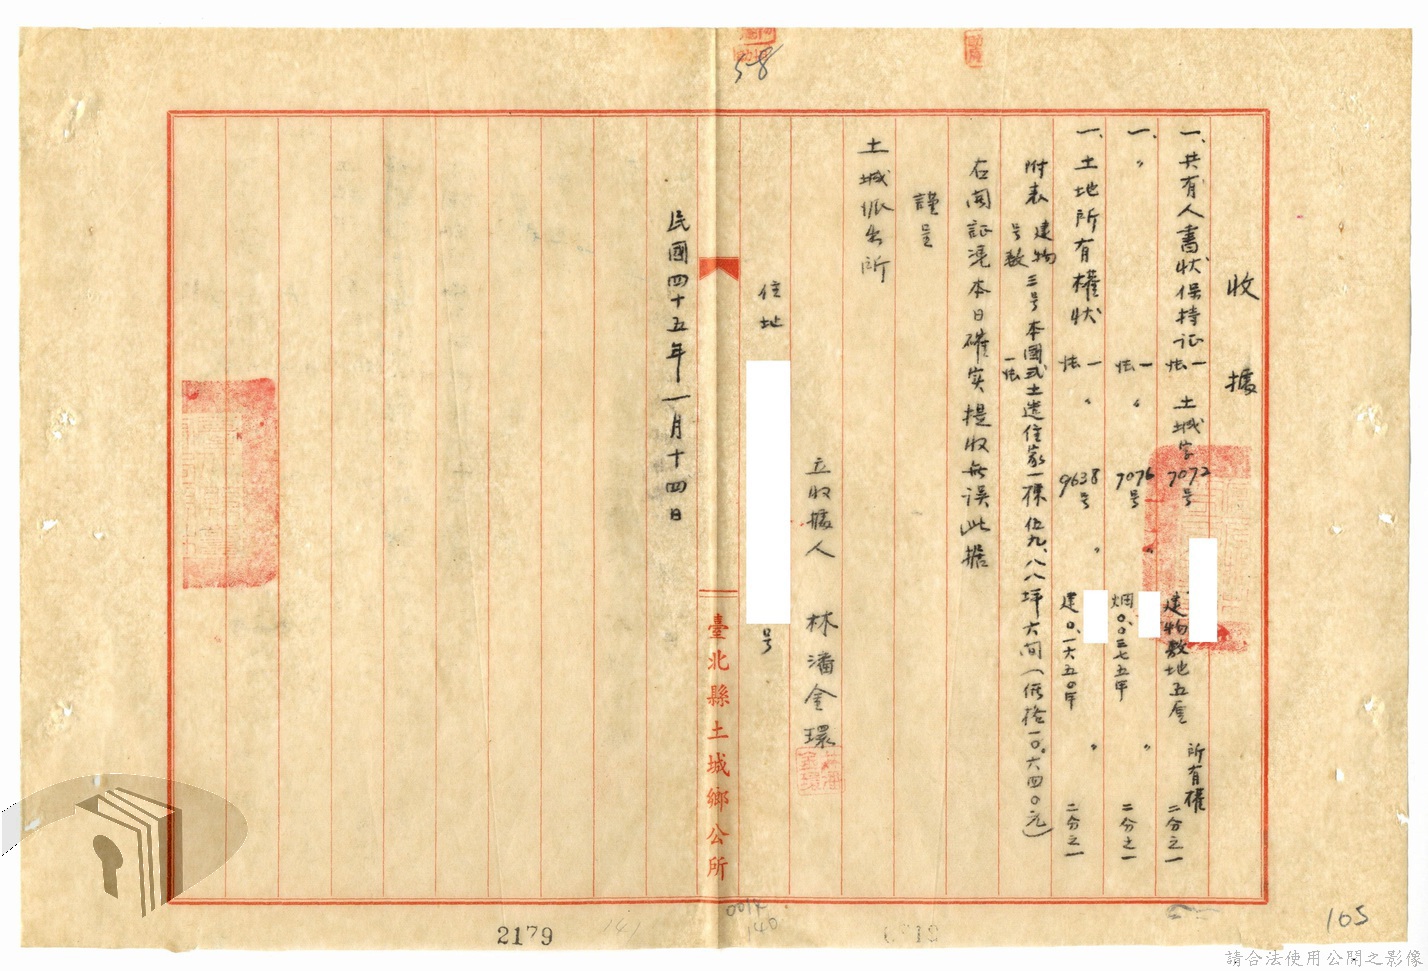 收據
一、共有人書狀保持证 一帋 土城字7072号 建物敷地五厘 所有權二分之一
一、〃 一帋 〃 7076号 〃 畑0.0三七五甲 〃 二分之一
一、土地所有權狀 一帋 〃 9638号 〃 建0.一六五0甲 〃 二分之一
附表 建物号数三号本國式土造住家一棟伍九.八八坪六间(価格一0.六四0元)
一帋
右開証凴本日確实提收無误此据
謹呈
土城派出所
立收據人 林潘金環
住址
号
臺北縣土城鄉公所
民國四十五年一月十四日
58
2179
140
105
請合法使用公開之影像